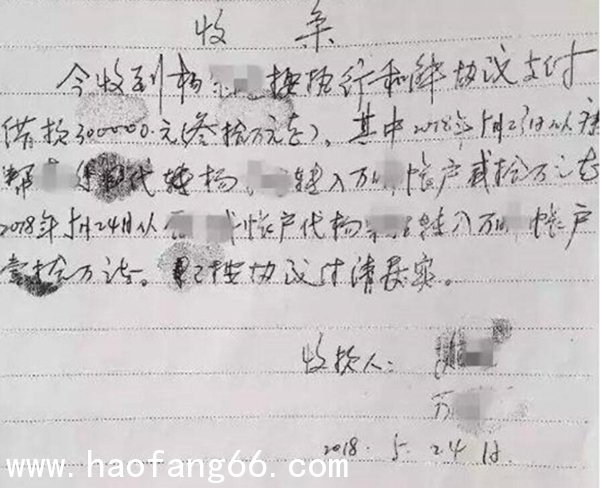 收 条
今收到杨 按执行和解协议支付
借款300000.元(叁拾万元正)。其中2018年5月23日从
帮 代转杨 转入万 帐户贰拾万元正
2018年5月24日从 帐户代杨 转入万 帐户
壹拾万元正。 已按协议付清属实。
收款人:
万
2018. 5. 24日.
www.haofang66.com